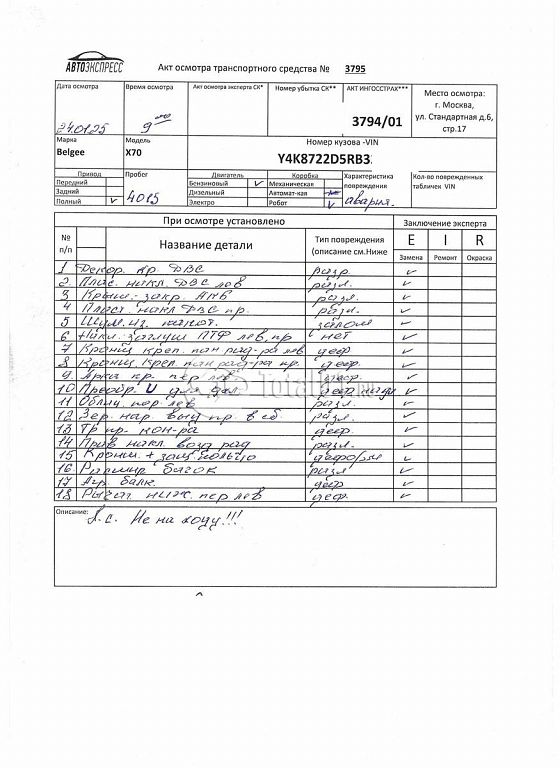 АВТОЭКСПРЕСС
Акт осмотра транспортного средства № 3795
Дата осмотра Время осмотра Акт осмотра эксперта СК* Номер убытка СК** АКТ ИНГОССТРАХ***
Место осмотра:
г. Москва,
ул. Стандартная д.6,
стр.17
24.01.25 9 00 3794/01
Марка Модель Номер кузова -VIN
Belgee X70 Y4K8722D5RB3
Привод Пробег Двигатель Коробка Характеристика повреждения Кол-во поврежденных табличек VIN
Передний Бензиновый ✓ Механическая
Задний 4015 Дизельный Автомат-кая авария.
Полный ✓ Электро Робот ✓
При осмотре установлено Заключение эксперта
№ п/п Название детали Тип повреждения (описание см.Ниже E I R
Замена Ремонт Окраска
1 Декор. кр ДВС разр. ✓
2 Плас. накл ДВС лев разл. ✓
3 Крыш. закр. АКБ разл. ✓
4 Пласт. накл ДВС пр. разл. ✓
5 Шум. из. капот. залом ✓
6 Накл. заглуш ПТФ лев, пр нет ✓
7 Кронш креп. пан рад-ра лев деф ✓
8 Кронш. креп пан рад-ра пр. деф. ✓
9 Арка кр. пер лев деф. ✓
10 Преобр. U деф ✓
11 Облиц. пер. лев разл. ✓
12 Зер. нар в сб. разл. ✓
13 Тр пр. кон-ра деф. ✓
14 накл. возд рад разл. ✓
15 Кронш. + защ. деформ ✓
16 Расшир бачок разл ✓
17 балк. деф ✓
18 Рычаг ниж. пер лев деф. ✓
Описание: А.с. Не на ходу!!!